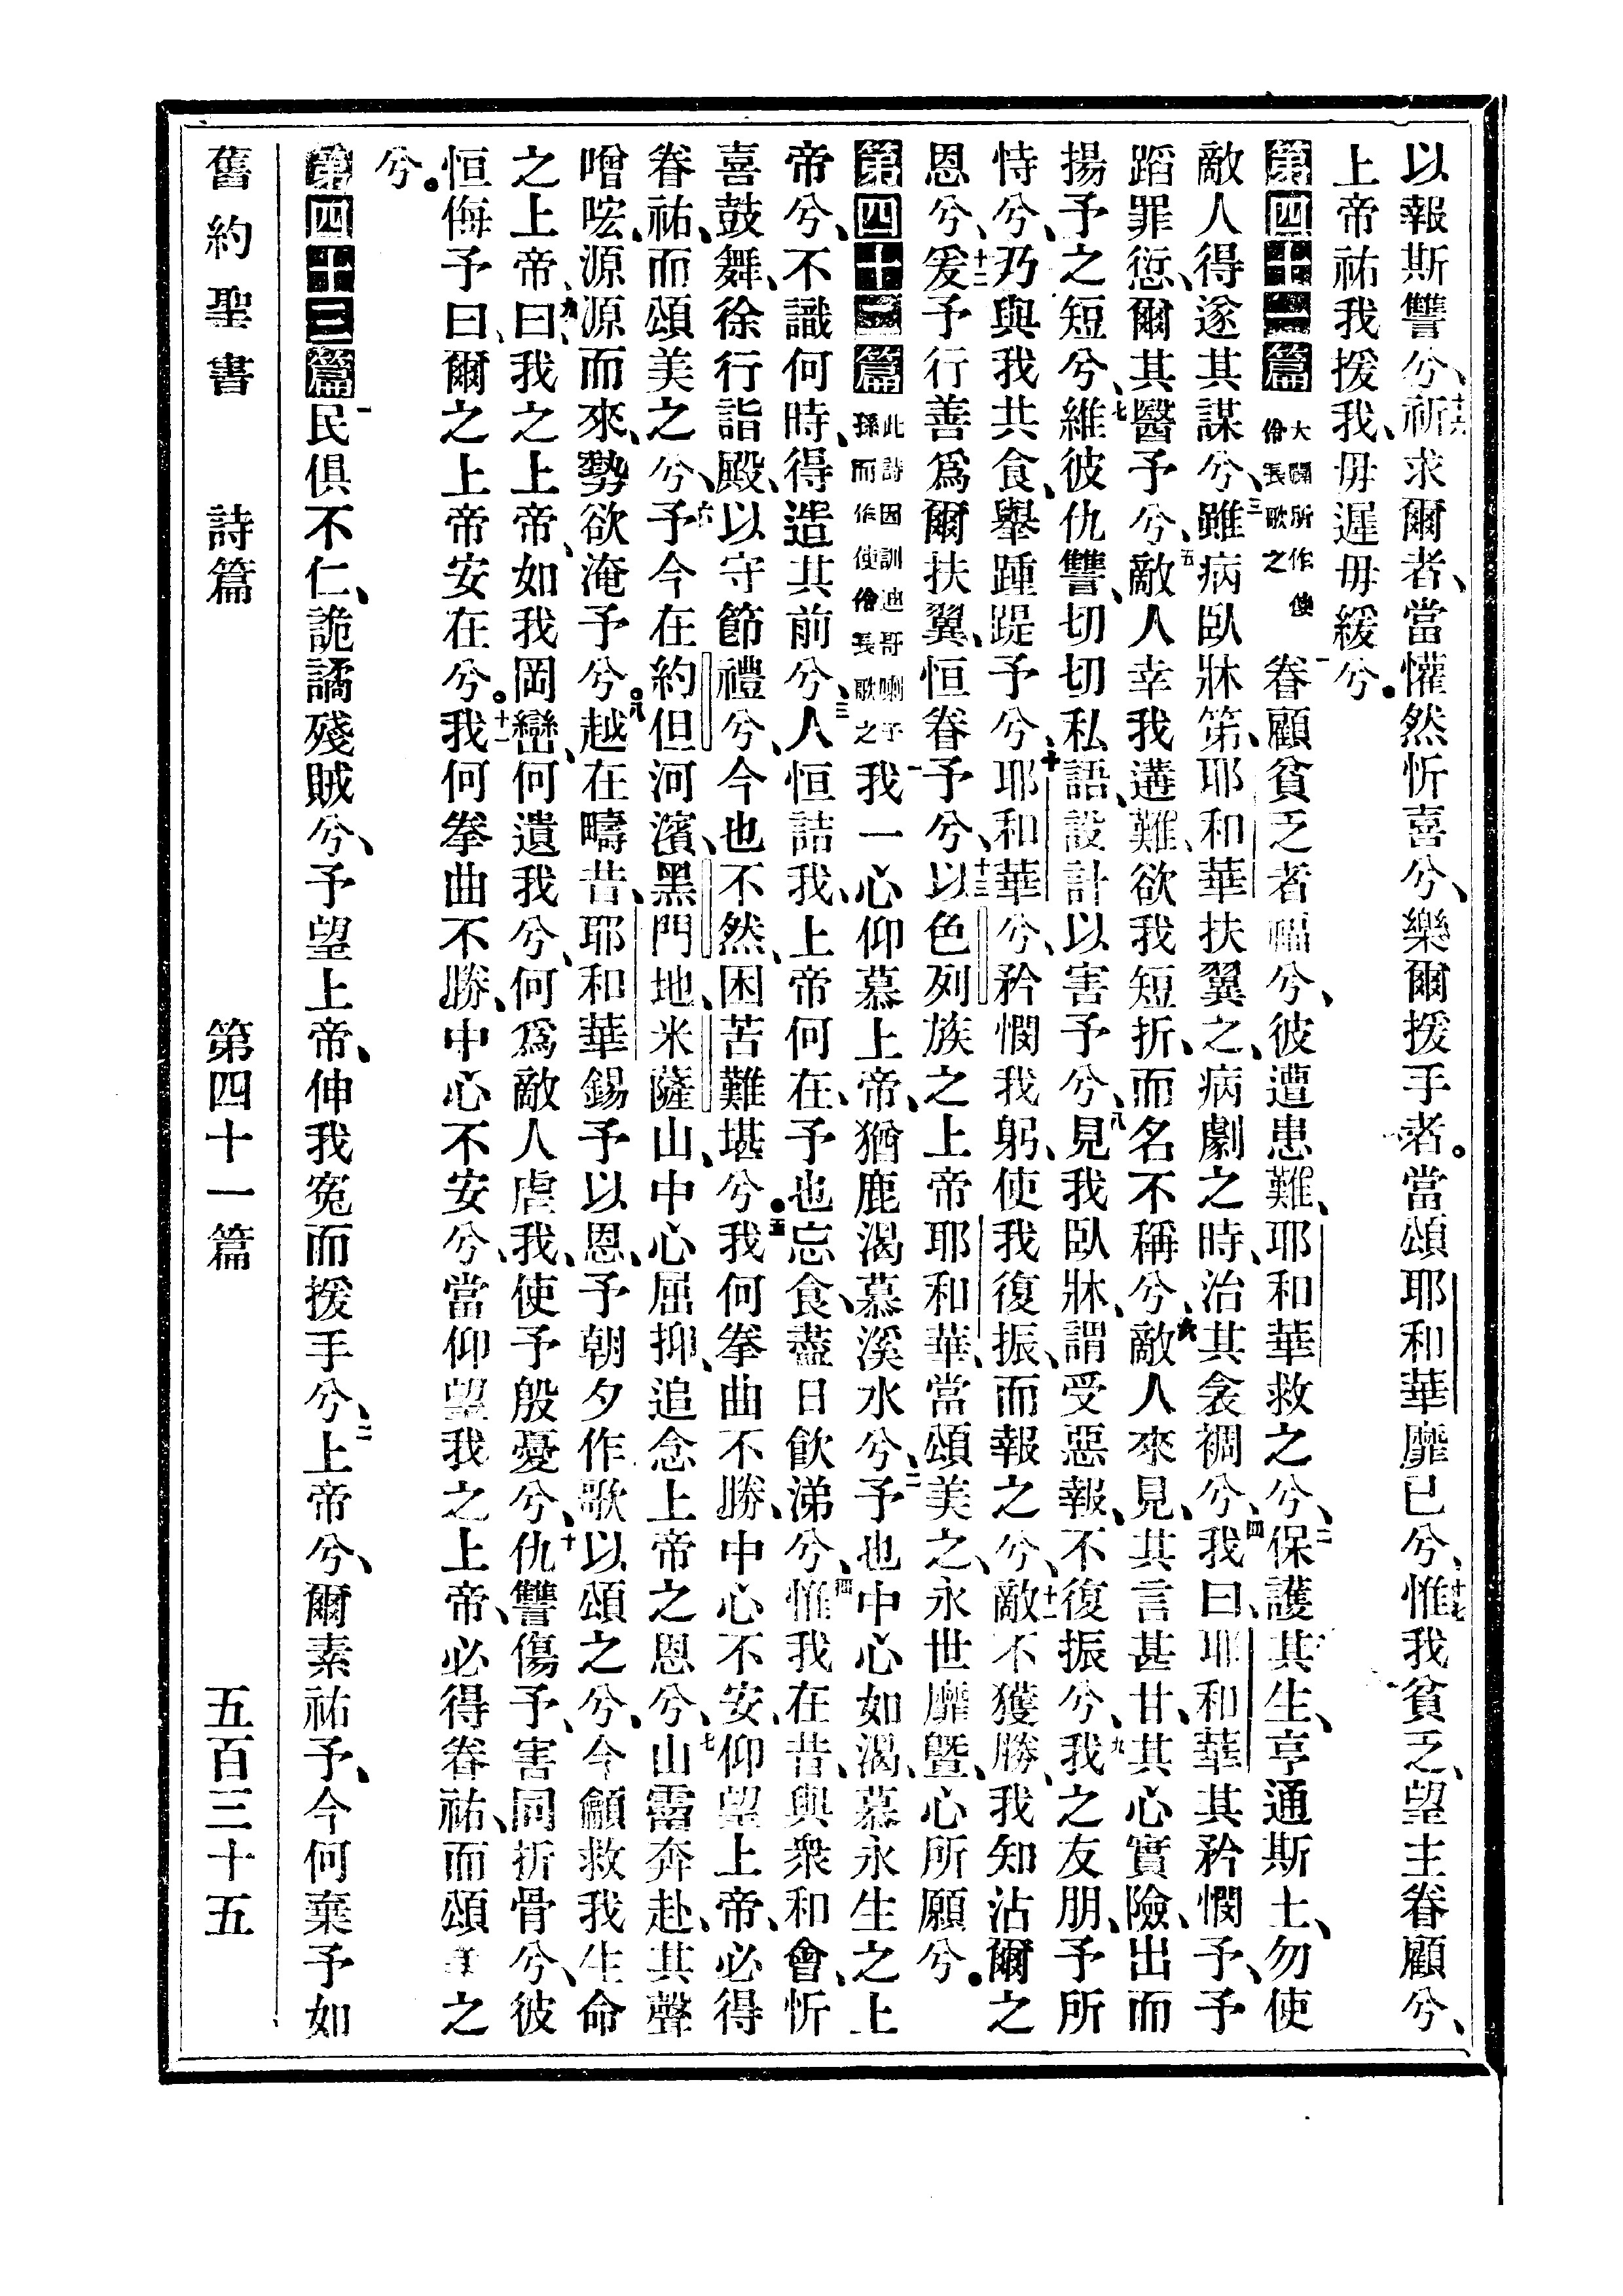 以報斯讐兮、十六祈求爾者、當懽然忻喜兮、樂爾援手者。當頌耶和華靡已兮、十七惟我貧乏、望主眷顧兮、
上帝祐我援我、毋遲毋緩兮。
第四十一篇 大闢所作使伶長歌之 一眷顧貧乏者福兮、彼遭患難、耶和華救之兮、二保護其生、亨通斯土、勿使
敵人得遂其謀兮、三雖病臥牀笫、耶和華扶翼之、病劇之時、治其衾裯兮、四我曰、耶和華其矜憫予、予
蹈罪愆、爾其醫予兮、五敵人幸我遘難、欲我短折、而名不稱兮、六敵人來見、其言甚甘、其心實險、出而
揚予之短兮、七維彼仇讐、切切私語、設計以害予兮、八見我臥牀、謂受惡報、不復振兮、九我之友朋、予所
恃兮、乃與我共食、舉踵踶予兮、十耶和華兮、矜憫我躬、使我復振、而報之兮、十一敵不獲勝、我知沾爾之
恩兮、十二爰予行善爲爾扶翼、恒眷予兮、十三以色列族之上帝耶和華、當頌美之、永世靡曁、心所願兮。
第四十二篇 此詩因訓迪哥喇子孫而作使伶長歌之 一我一心仰慕上帝、猶鹿渴慕溪水兮、二予也中心如渴、慕永生之上
帝兮、不識何時、得造其前兮、三人恒詰我、上帝何在、予也忘食、盡日飮涕兮、四惟我在昔、與衆和會、忻
喜鼓舞、徐行詣殿、以守節禮兮、今也不然、困苦難堪兮。五我何拳曲不勝、中心不安、仰望上帝、必得
眷祐、而頌美之兮、六予今在約但河濱、黑門地、米薩山、中心屈抑、追念上帝之恩兮、七山霤奔赴、其聲
噌吰、源源而來、勢欲淹予兮。八越在疇昔、耶和華錫予以恩、予朝夕作歌以頌之兮、今籲救我生命
之上帝、九曰、我之上帝、如我岡巒、何遺我兮、何爲敵人虐我、使予殷憂兮、十仇讐傷予、害同折骨兮、彼
恒侮予曰、爾之上帝安在兮。十一我何拳曲不勝、中心不安兮、當仰望我之上帝、必得眷祐、而頌之
兮。
第四十三篇 一民俱不仁、詭譎殘賊兮、予望上帝、伸我寃而援手兮、二上帝兮、爾素祐予、今何棄予如
舊約聖書 詩篇 第四十一篇 五百三十五